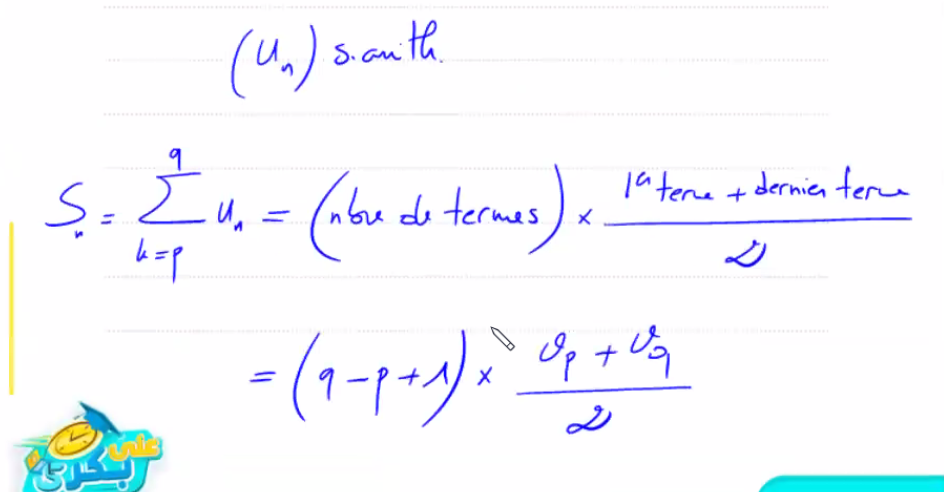 (Uₙ) s. arith.
Sₙ = ∑_{k=p}^{q} uₙ = (nbre de termes) × (1er terme + dernier terme)/2
= (q – p + 1) × (υₚ + υ_q)/2
على بكري